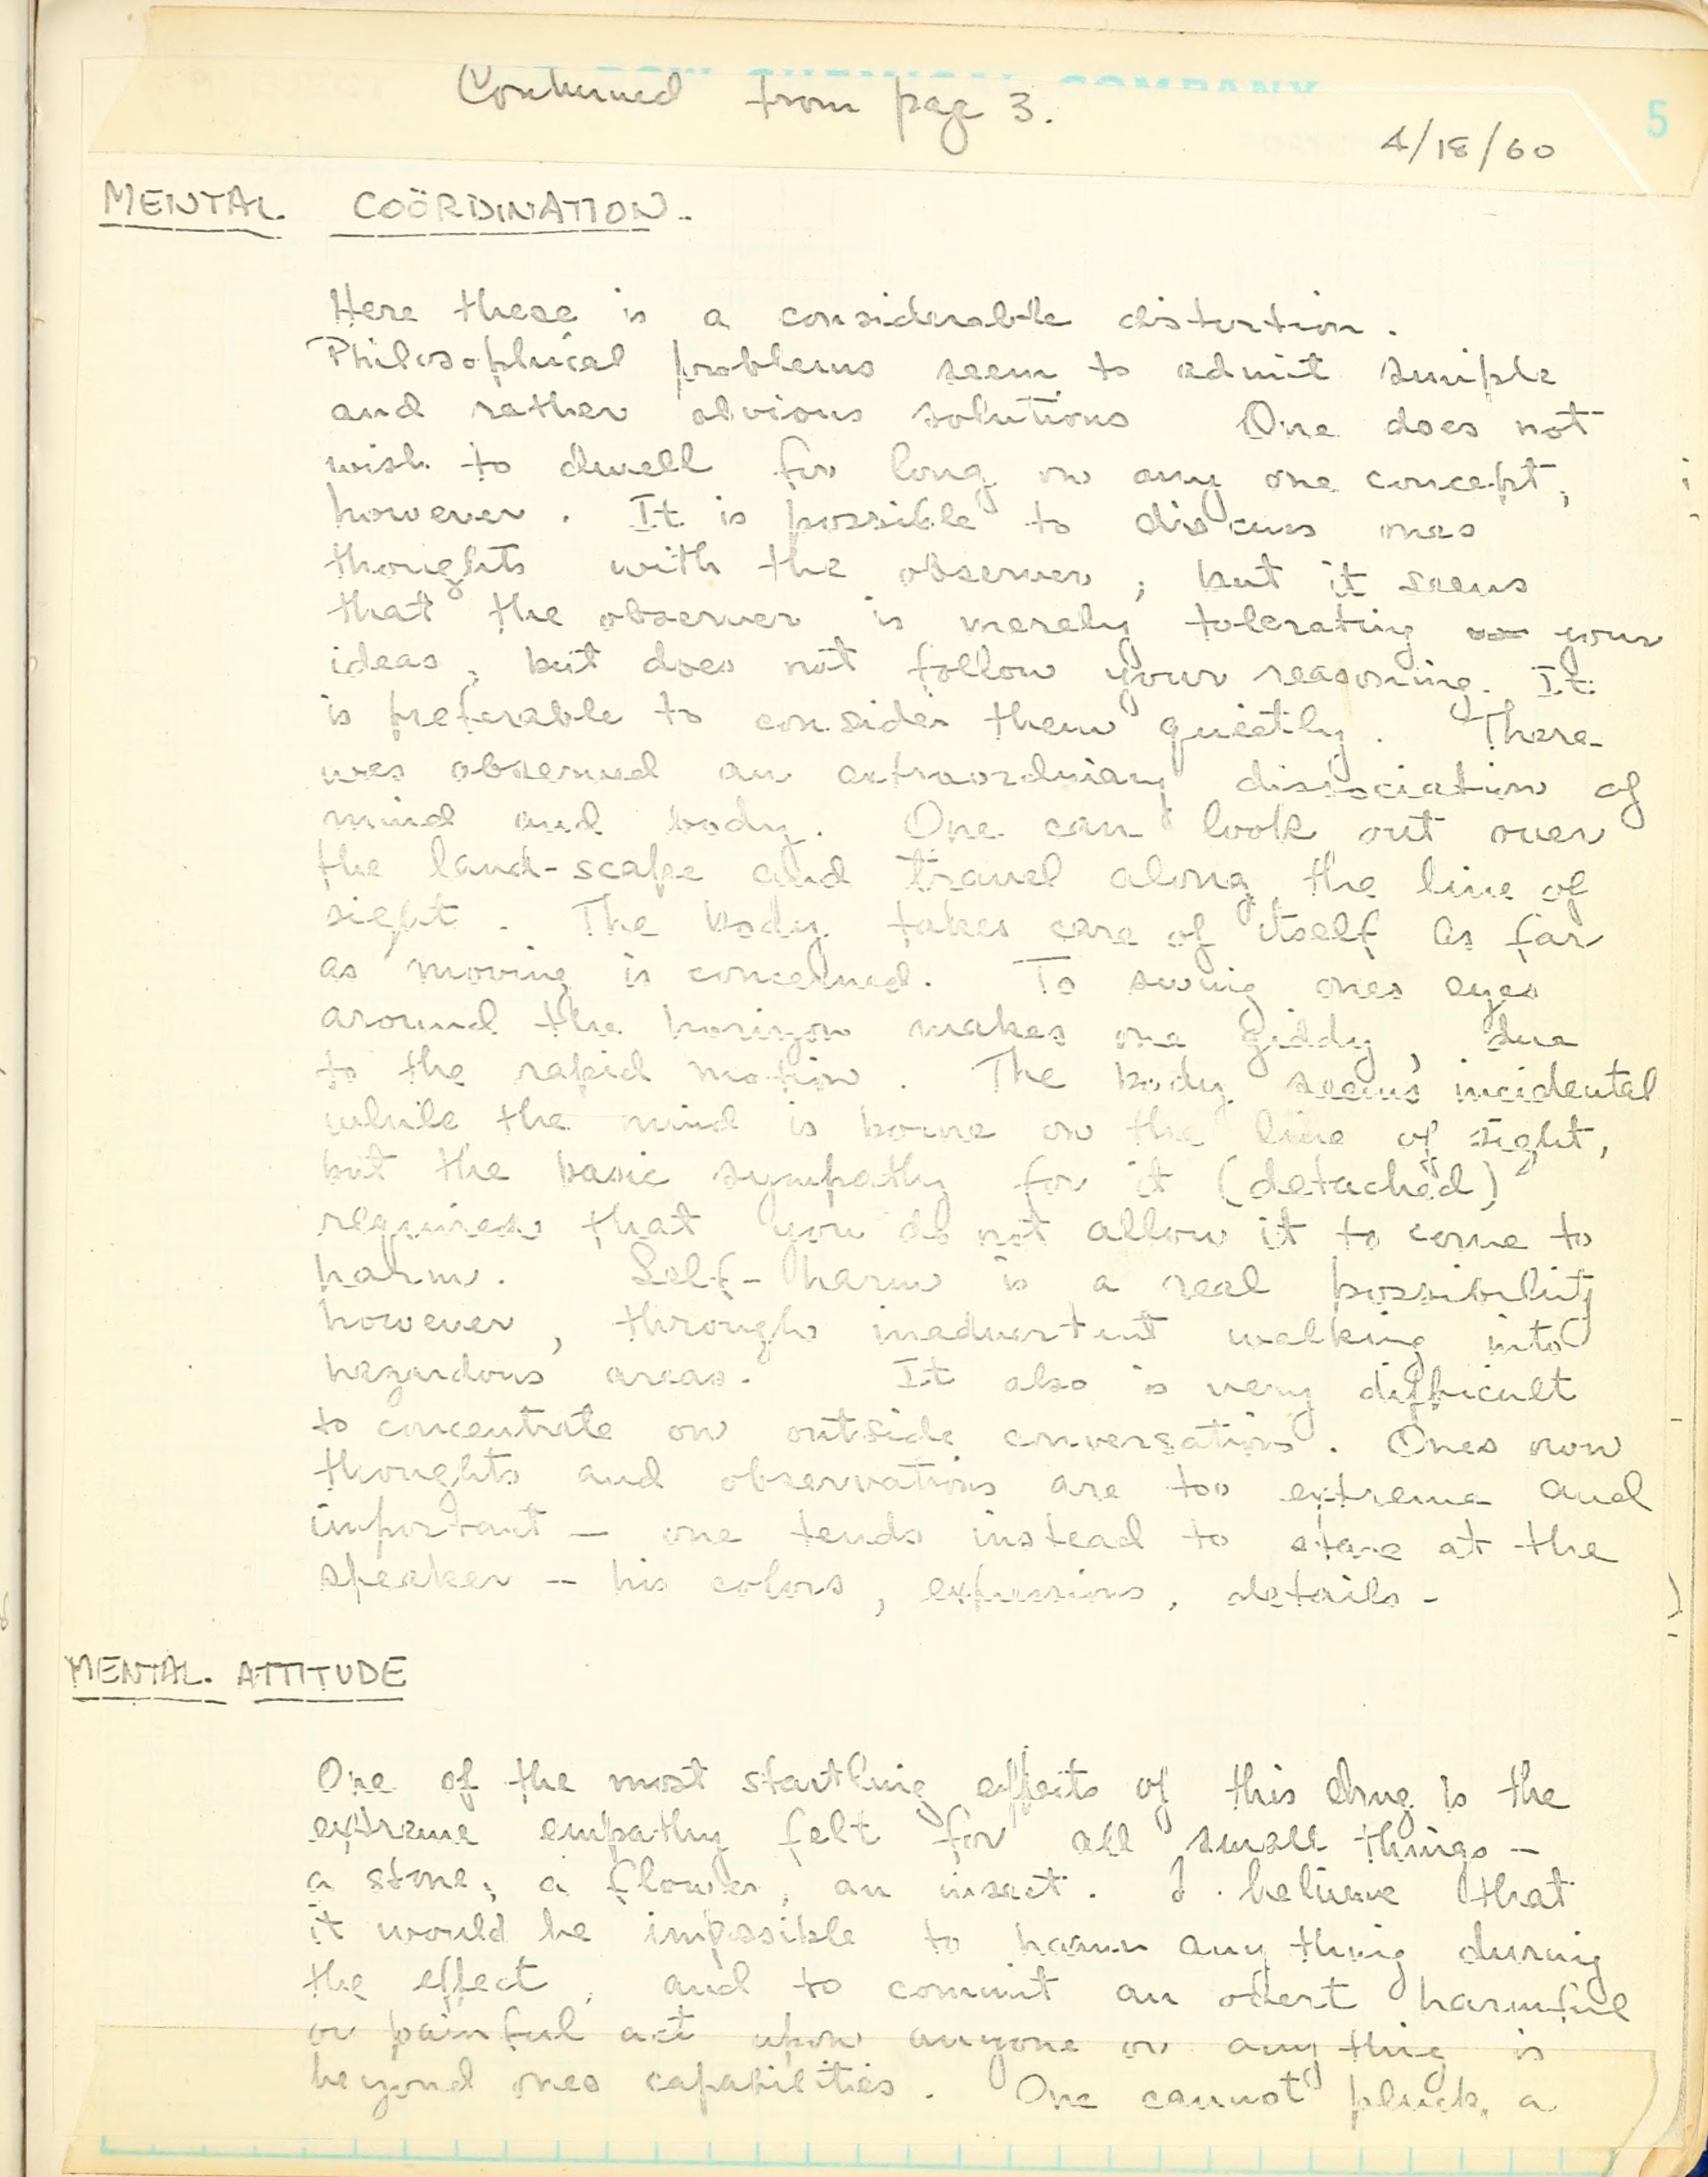 THE DOW CHEMICAL COMPANY
Continued from page 3.
5
4/18/60
MENTAL COÖRDINATION.
Here there is a considerable distortion.
Philosophical problems seem to admit simple
and rather obvious solutions One does not
wish to dwell for long on any one concept,
however. It is possible to discuss ones
thoughts with the observer, but it seems
that the observer is merely tolerating your
ideas, but does not follow your reasoning. It
is preferable to consider them quietly. There
was observed an extraordinary dissociation of
mind and body. One can look out over
the land-scape and travel along the line of
sight. The body takes care of itself as far
as moving is concerned. To swing ones eyes
around the horizon makes one giddy, due
to the rapid motion. The body seems incidental
while the mind is borne on the line of sight,
but the basic sympathy for it (detached)
requires that you do not allow it to come to
harm. Self-harm is a real possibility
however, through inadvertent walking into
hazardous areas. It also is very difficult
to concentrate on outside conversations. Ones own
thoughts and observations are too extreme and
important — one tends instead to stare at the
speaker — his colors, expressions, details.
MENTAL ATTITUDE
One of the most startling effects of this drug is the
extreme empathy felt for all small things —
a stone, a flower, an insect. I believe that
it would be impossible to harm any thing during
the effect, and to commit an overt harmful
or painful act upon anyone or any thing is
beyond ones capabilities. One cannot pluck a